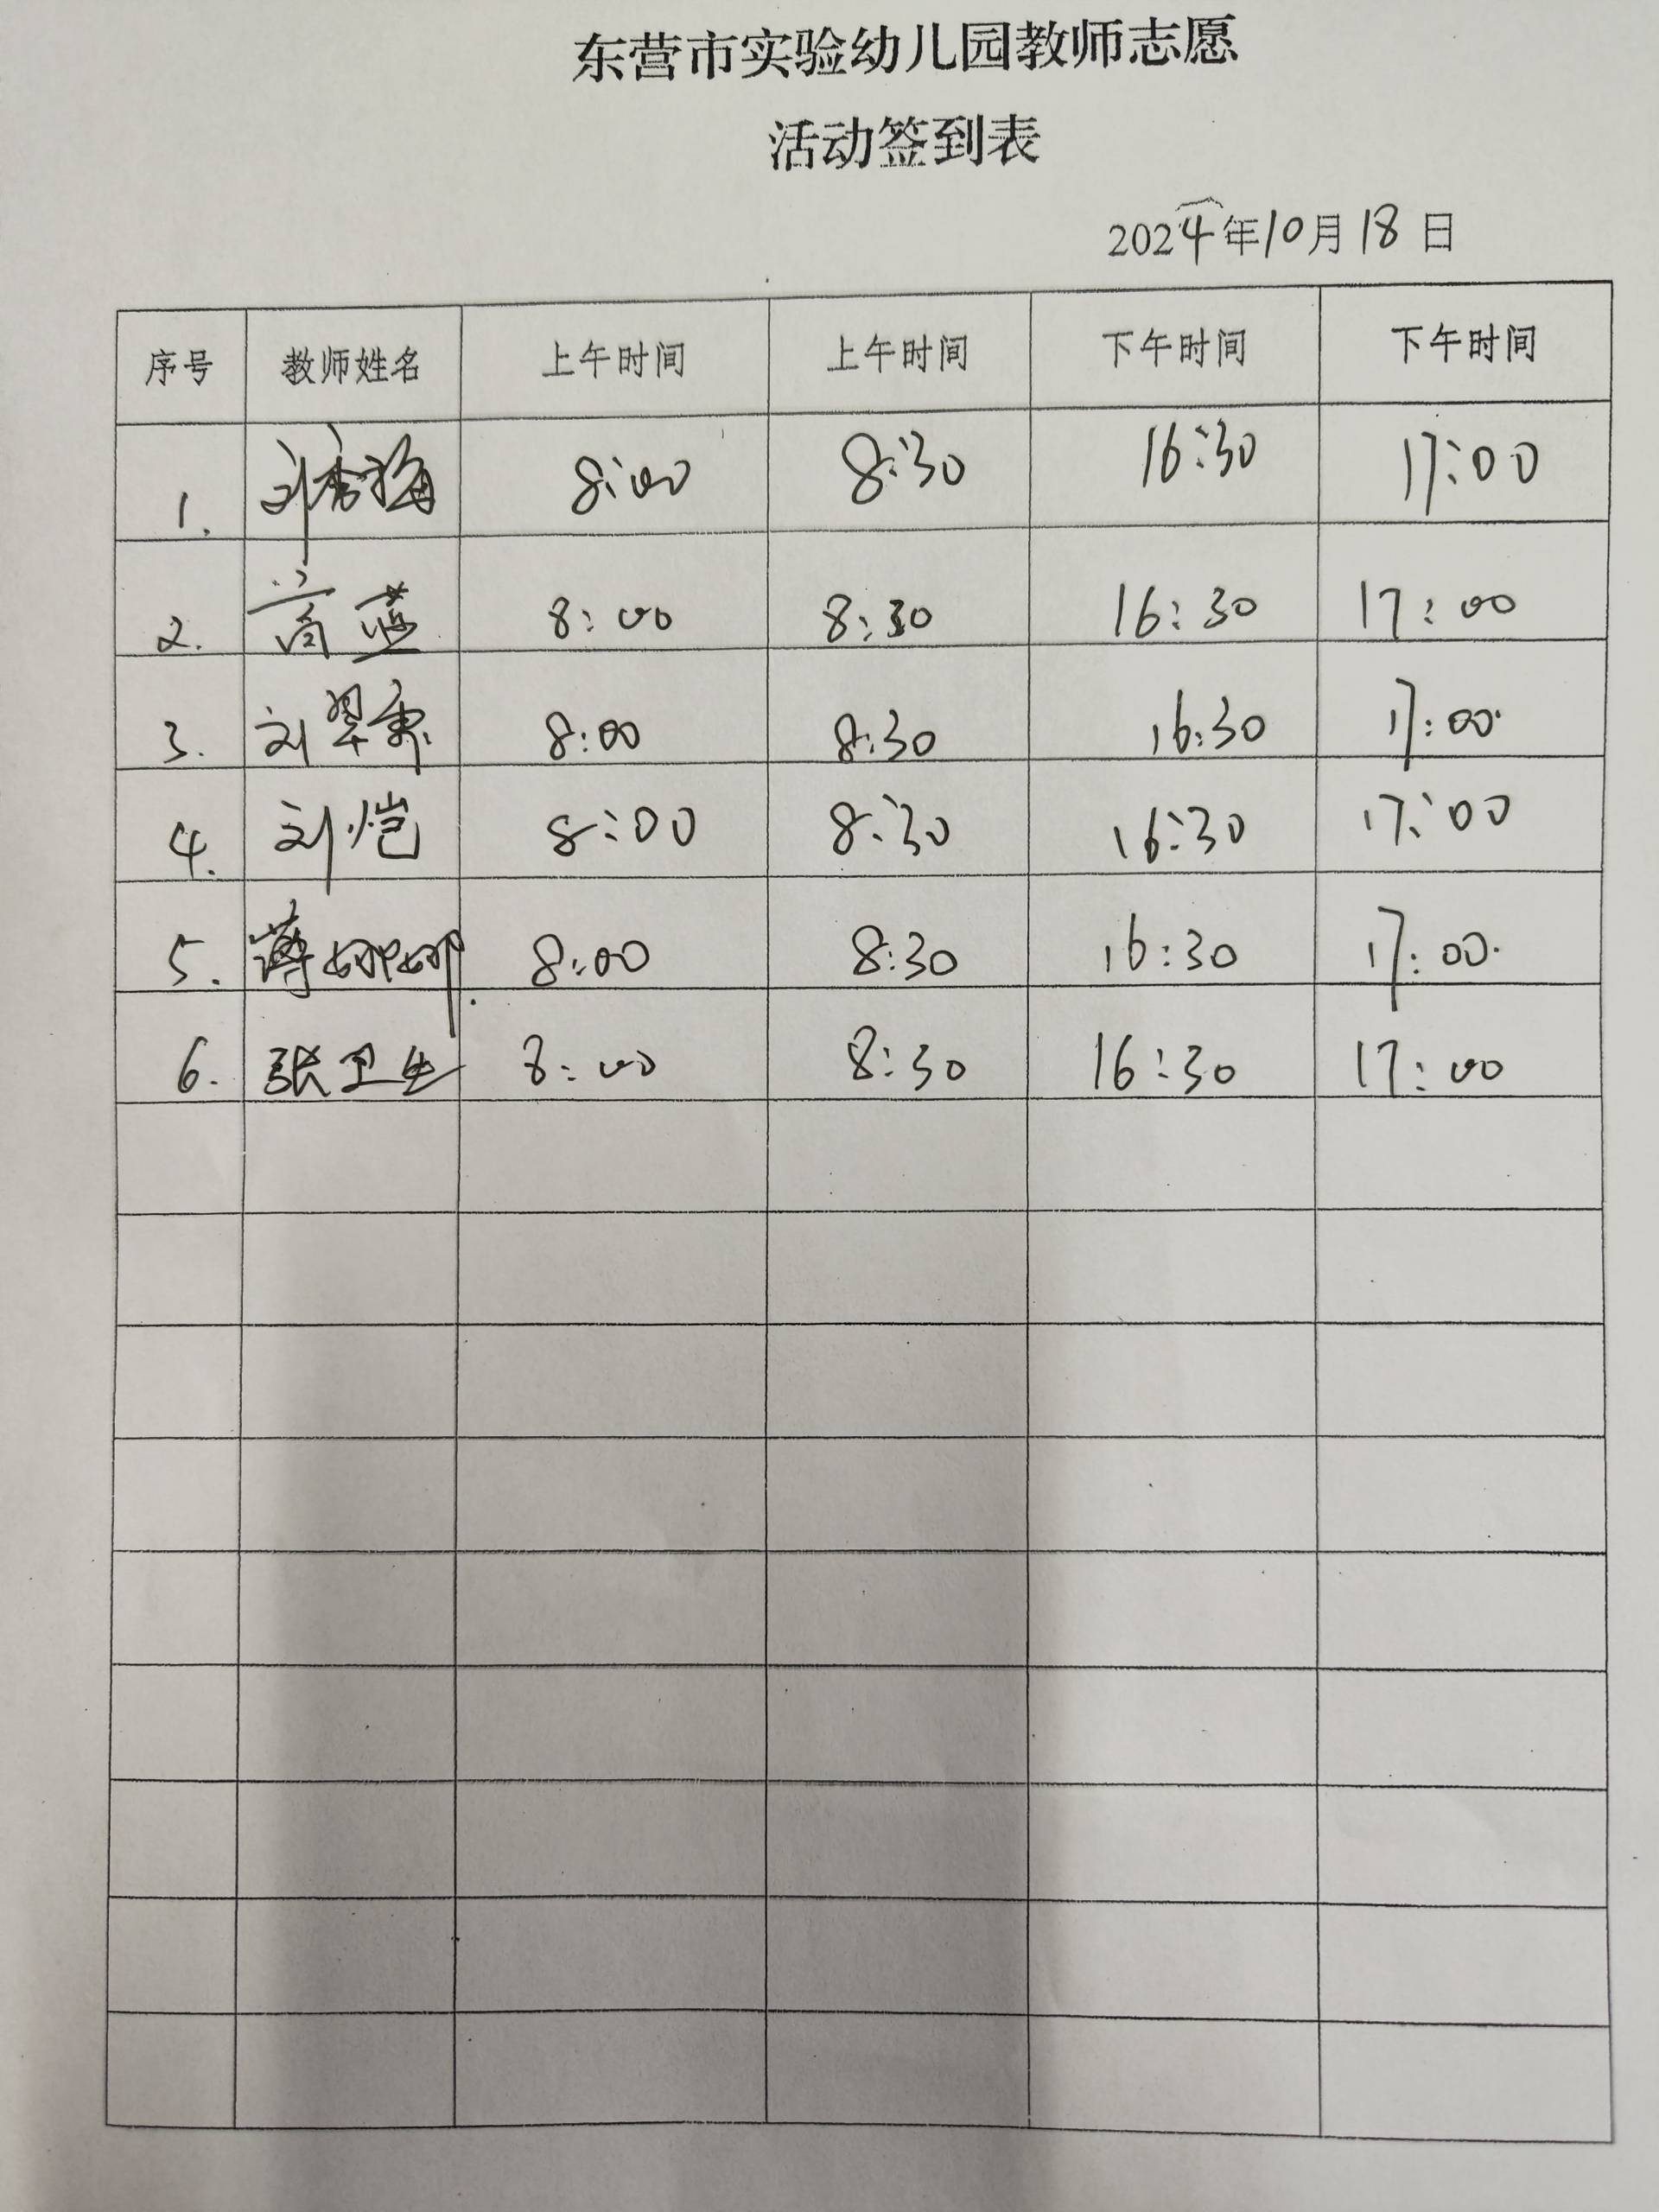 东营市实验幼儿园教师志愿
活动签到表
2024年10月18日
序号 教师姓名 上午时间 上午时间 下午时间 下午时间
1. 刘秀梅 8:00 8:30 16:30 17:00
2. 商莲 8:00 8:30 16:30 17:00
3. 刘翠 8:00 8:30 16:30 17:00
4. 刘恺 8:00 8:30 16:30 17:00
5. 薄娜娜 8:00 8:30 16:30 17:00
6. 张卫生 8:00 8:30 16:30 17:00